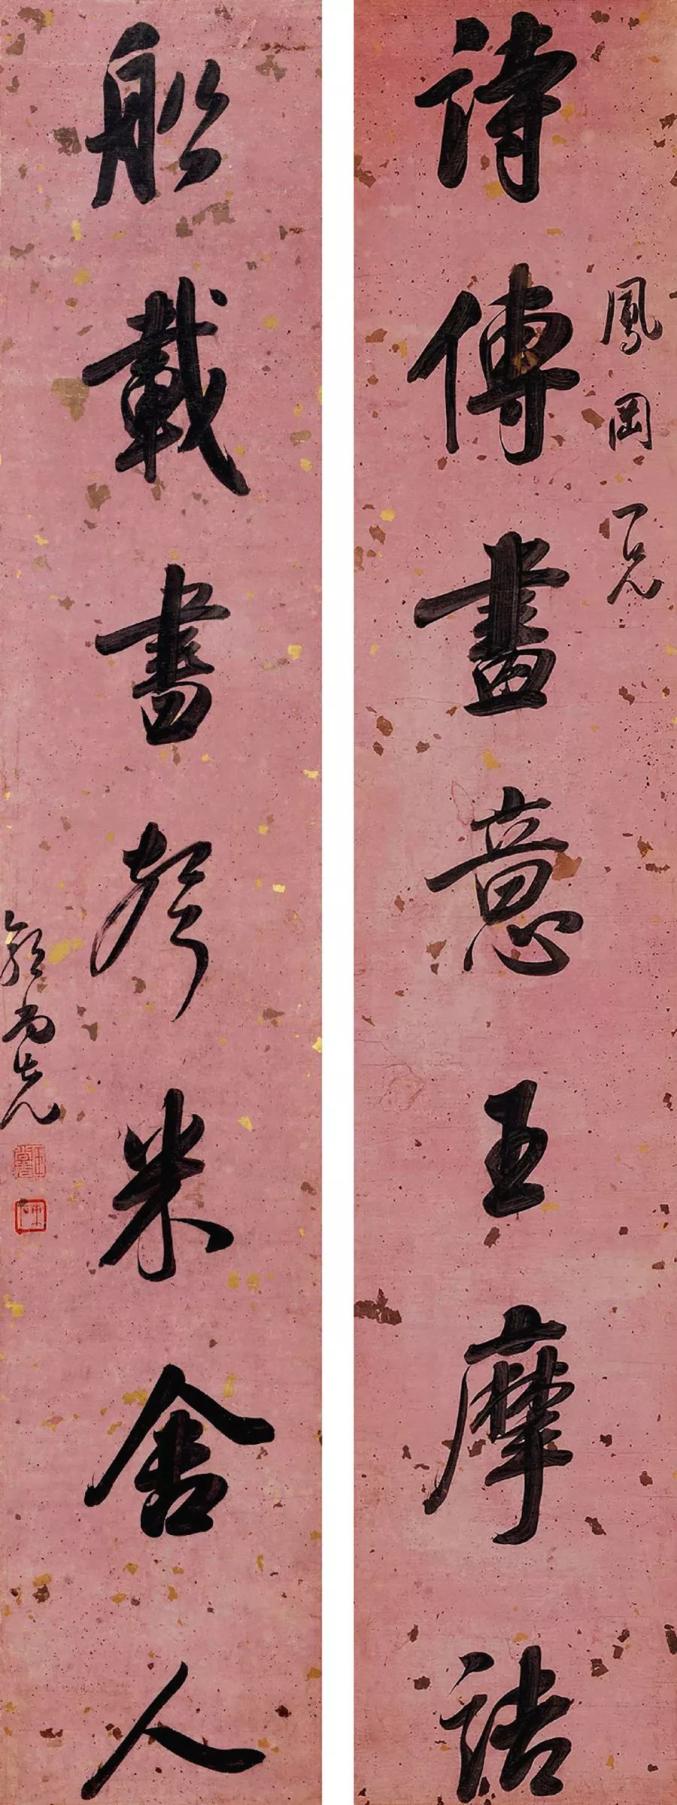 詩傳畫意王摩詰
鳳岡兄
船載書聲米舍人
郭尚先